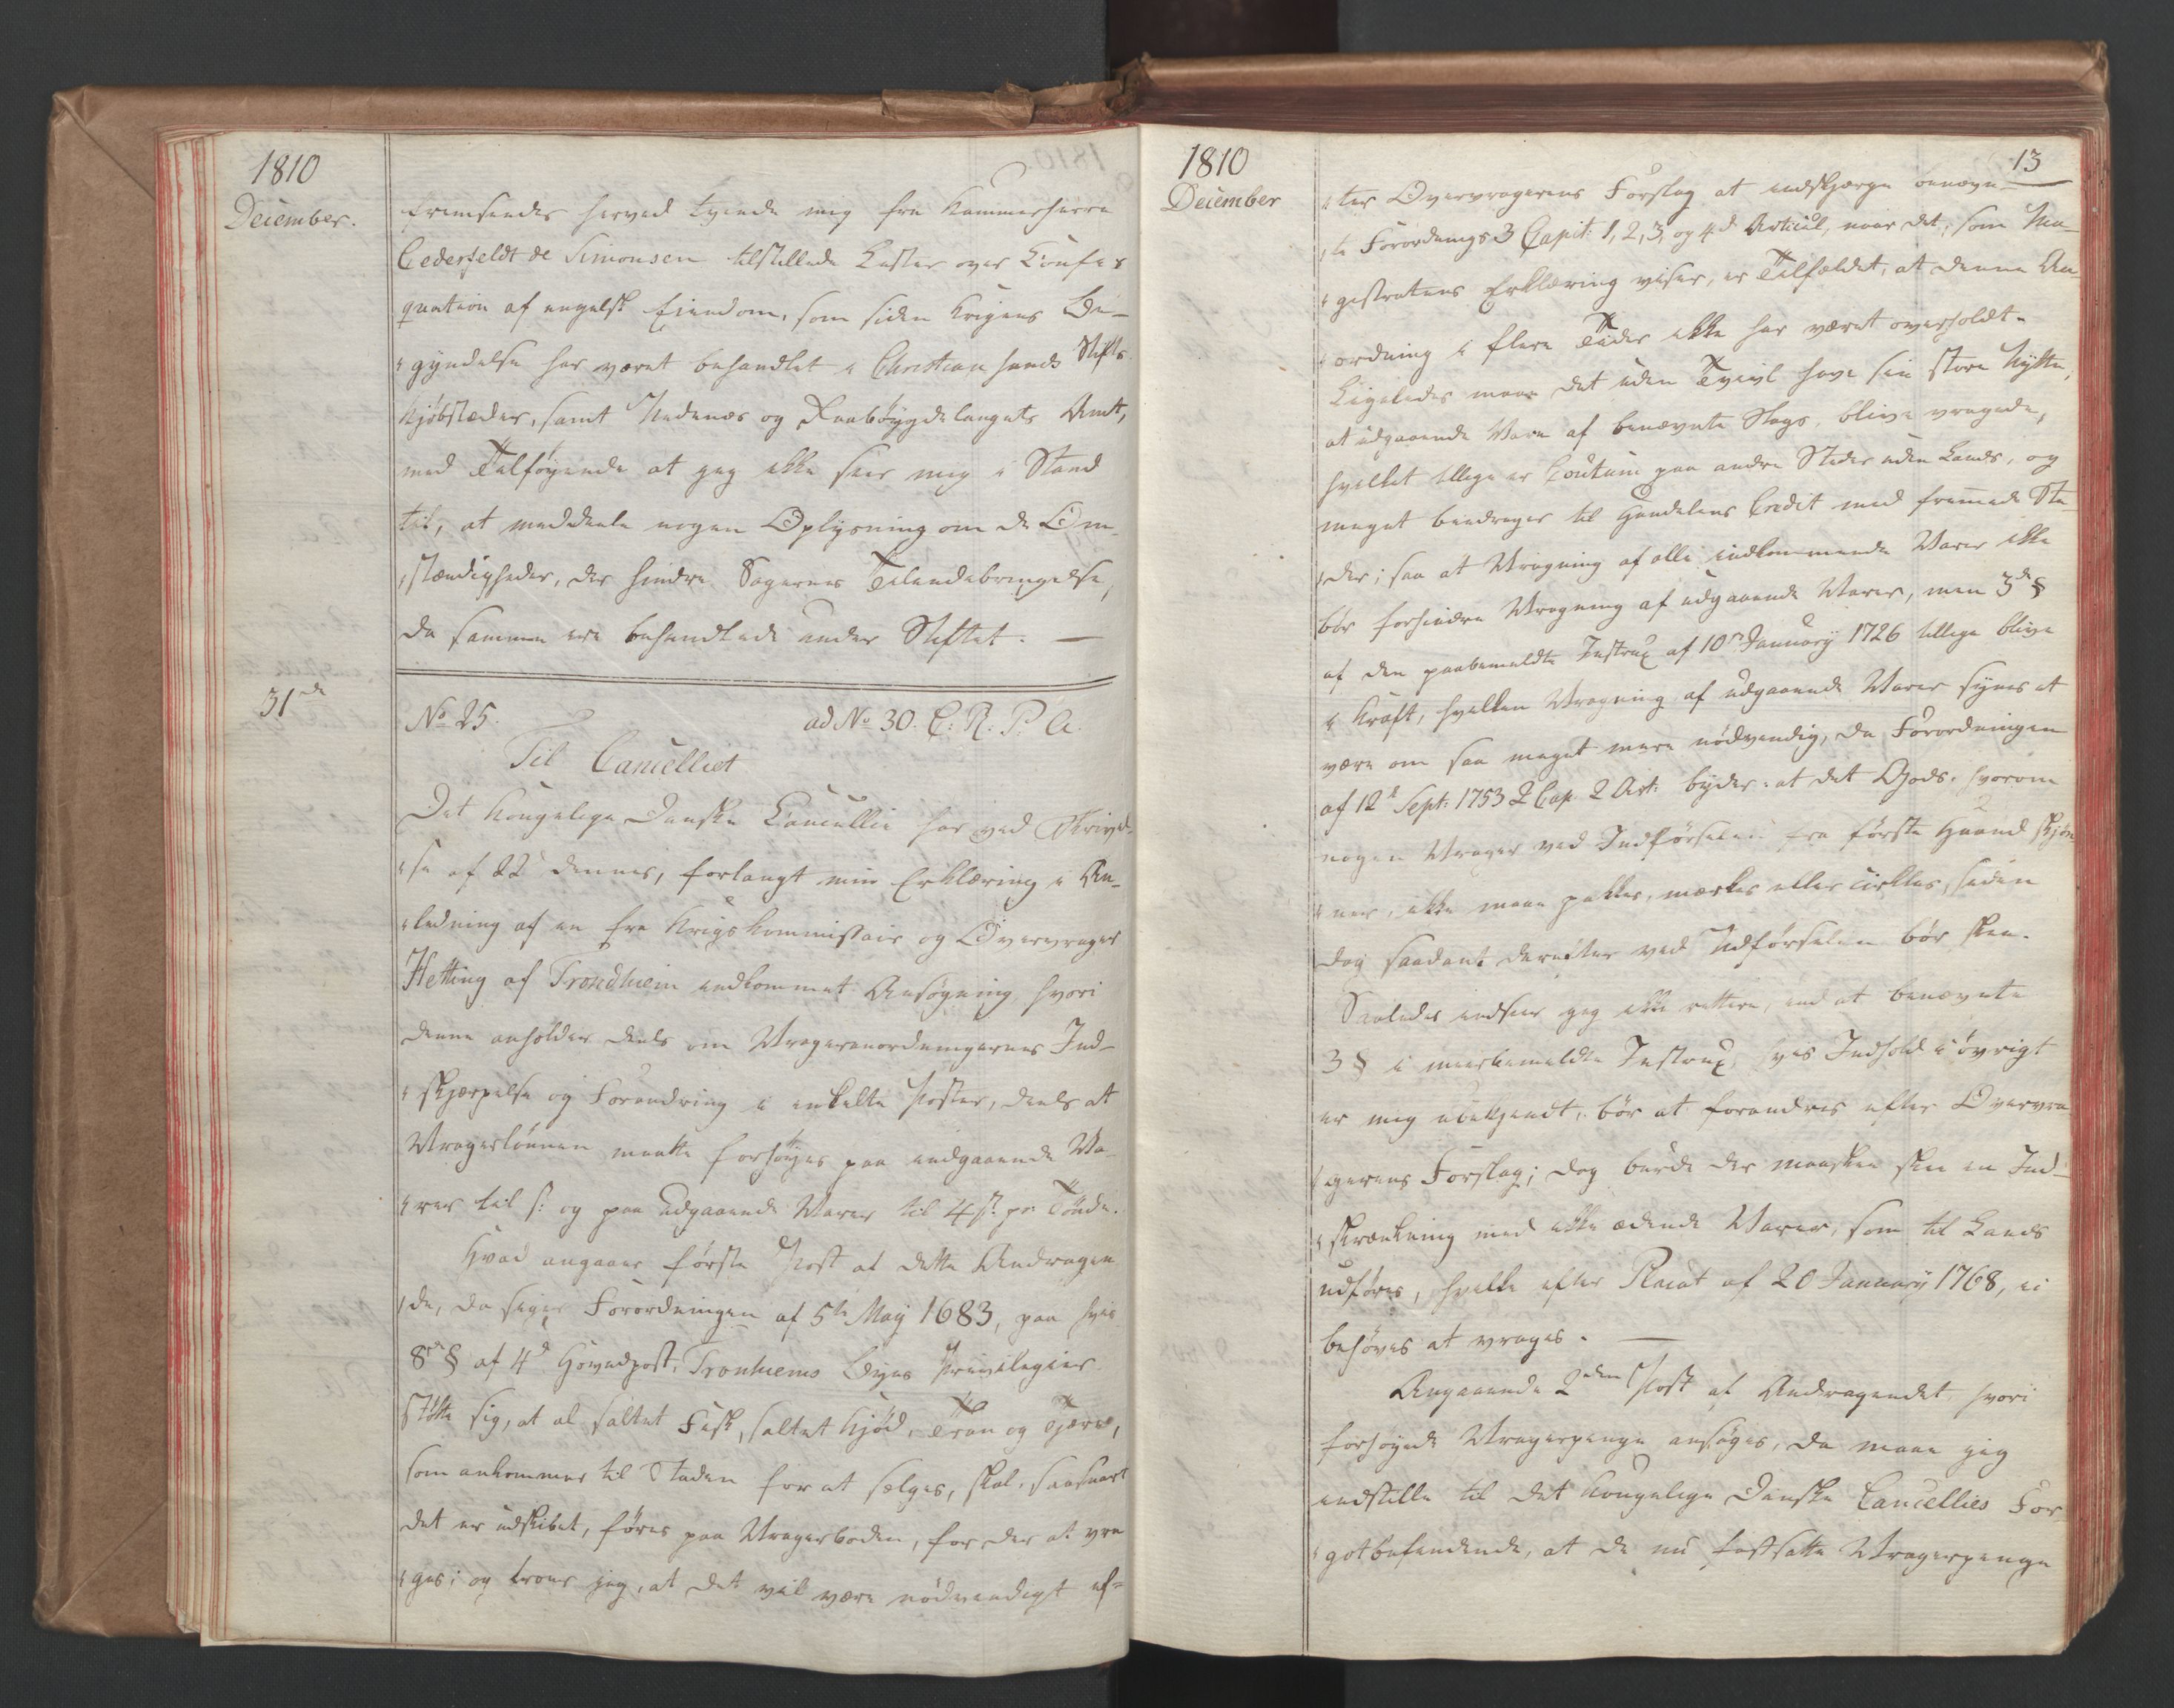 1810
December.
fremsendes herved tvende mig fra Kammerherre
Cederfeldt de Simonsen tilstillede Lister over Konfis
quation af engelsk Eiendom, som siden Krigens Be-
gyndelse har været behandlet i Christiansands Stifts
Kjøbstæder, samt Nedenæs og Raabøygdelaugets Amt,
med Tilføiende at jeg ikke seer mig i Stand
til, at meddeele nogen Oplysning om de Om-
stændigheder, der hindre Sagernes Tilendebringelse,
da samme ere behandlede under Stiftet. —
31de
No 25. ad No 30. C: R. P. A.
Til Cancelliet
Det Kongelige Danske Cancellie har ved Skrivel-
se af 22 dennes, forlangt min Erklæring i An-
ledning af en fra Krigskommissair og Overvrager
Hetting af Trondhiem indkommet Ansøgning, hvori
denne anholder deels om Vrageranordningernes Ind-
skjærpelse og Forandring i enkelte Poster, deels at
Vragerlønnen maatte forhøjes paa indgaaende Va-
rer til s: og paa udgaaende Varer til 4 s. pr Tønde.
Hvad angaaer første Post at dette Andragen
de, da siger Forordningen af 5te May 1683, paa hvis
8de § af 4d Hovedpost, Tronhiems Byes Privilegier
støtte sig, at al saltet Fisk, saltet Kjød, Tran og Tjære,
som ankommer til Staden for at sælges, skal, saasnart
det er udskibet, føres paa Vragerboden, for der at vra
ges; og troer jeg, at det vil være nødvendigt ef-
1810
December
13
ter Overvragerens Forslag at indskjærpe benævn-
te Forordnings 3 Capit: 1, 2, 3, og 4d Articul, naar det, som Ma-
gistratens Erklæring viser, er Tilfældet, at denne An-
ordning i flere Tider ikke har været overholdt.
Ligeledes maae det uden Tvivl have sin store Nytte,
at udgaaende Vare af benævnte Slags, blive vragede,
hvilket tillige er Coutum paa andre Steder uden Lands, og
meget bidrager til Handelens Credit med fremmede Ste-
der; saa at Vragning af alle indkommende Varer ikke
bør forhindre Vragning af udgaaende Varer, men 3de §
af den paabemeldte Instrux af 10de January 1726 tillige blive
i Kraft, hvilken Vragning af udgaaende Varer synes at
være om saa meget mere nødvendig, da Forordningen
af 12te Sept: 1753 2 Cap. 2 Art. byder: at det Gods, hvorom
nogen Vrager ved Indførselen fra første Haand skjøn-
ner, ikke maae pakkes, mærkes eller cirkles, siden
dog saadant derefter ved Udførselen bør skee.
Saaledes indseer jeg ikke rettere, end at benævnte
3 § i meerbemeldte Instrux, hvis Indhold i øvrigt
er mig ubekjendt, bør at forandres efter Overvra
gerens Forslag; dog burde der maaskee skee en Ind-
skrænkning med ikke ædende Varer, som til Lands
udføres, hvilke efter Placat af 20 January 1768, ei
behøves at vrages. —
Angaaende 2den Post af Andragendet, hvori
forhøyede Vragerpenge ansøges, da maae jeg
indstille til det Kongelige Danske Cancellies For
gotbefindende, at de nu fastsatte Vragerpenge